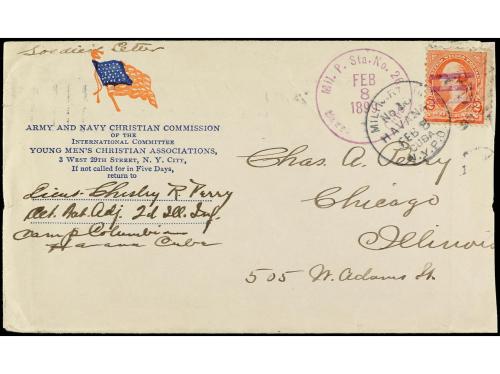 Soldier's Letter
ARMY AND NAVY CHRISTIAN COMMISSION
OF THE
INTERNATIONAL COMMITTEE
YOUNG MEN'S CHRISTIAN ASSOCIATIONS,
3 WEST 29TH STREET, N. Y. CITY,
If not called for in Five Days,
return to
Lieut. Chesley R. Perry
Act. Bat. Adj. 2d Ill. Inf.
Camp Columbia
Havana Cuba
MIL. P. Sta. No.
FEB
8
189
HAVANA
FEB 8
CUBA
N.Y.P.O.
2
2
Chas. A. Perry
Chicago
Illinois
505 W. Adams St.